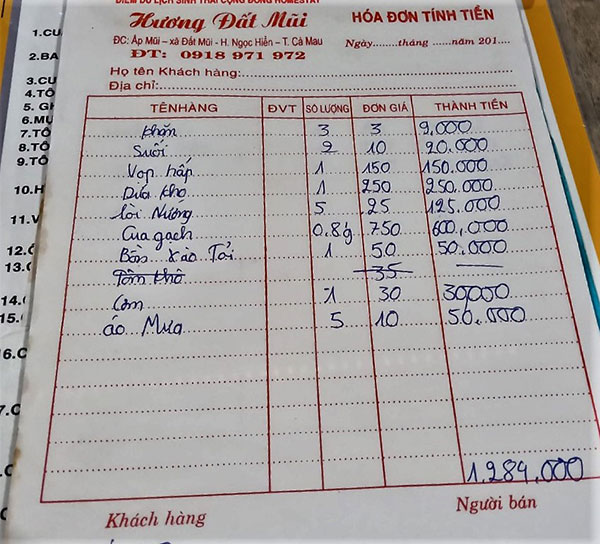 ĐIỂM DU LỊCH SINH THÁI CỘNG ĐỒNG HOMESTAY
Hương Đất Mũi
ĐC: Ấp Mũi - xã Đất Mũi - H. Ngọc Hiển - T. Cà Mau
ĐT: 0918 971 972
HÓA ĐƠN TÍNH TIỀN
Ngày........tháng ......năm 201....
Họ tên Khách hàng:
Địa chỉ:
TÊN HÀNG ĐVT SỐ LƯỢNG ĐƠN GIÁ THÀNH TIỀN
Khăn 3 3 9.000
Suối 2 10 20.000
Vọp hấp 1 150 150.000
Dứa kho 1 250 250.000
lời Nướng 5 25 125.000
Cua gạch 0.8g 750 600.000
Bồn xào Tỏi 1 50 50.000
Tôm khô 35
Cơm 1 30 30000
áo Mưa 5 10 50.000
1.284.000
Khách hàng Người bán
1.CU
2.BA
3.CU
4.TÔ
5. GH
6.MỰ
7.TÔ
8.TÔ
9.TÔ
10.H
11.V
12.
13.
14.
15.